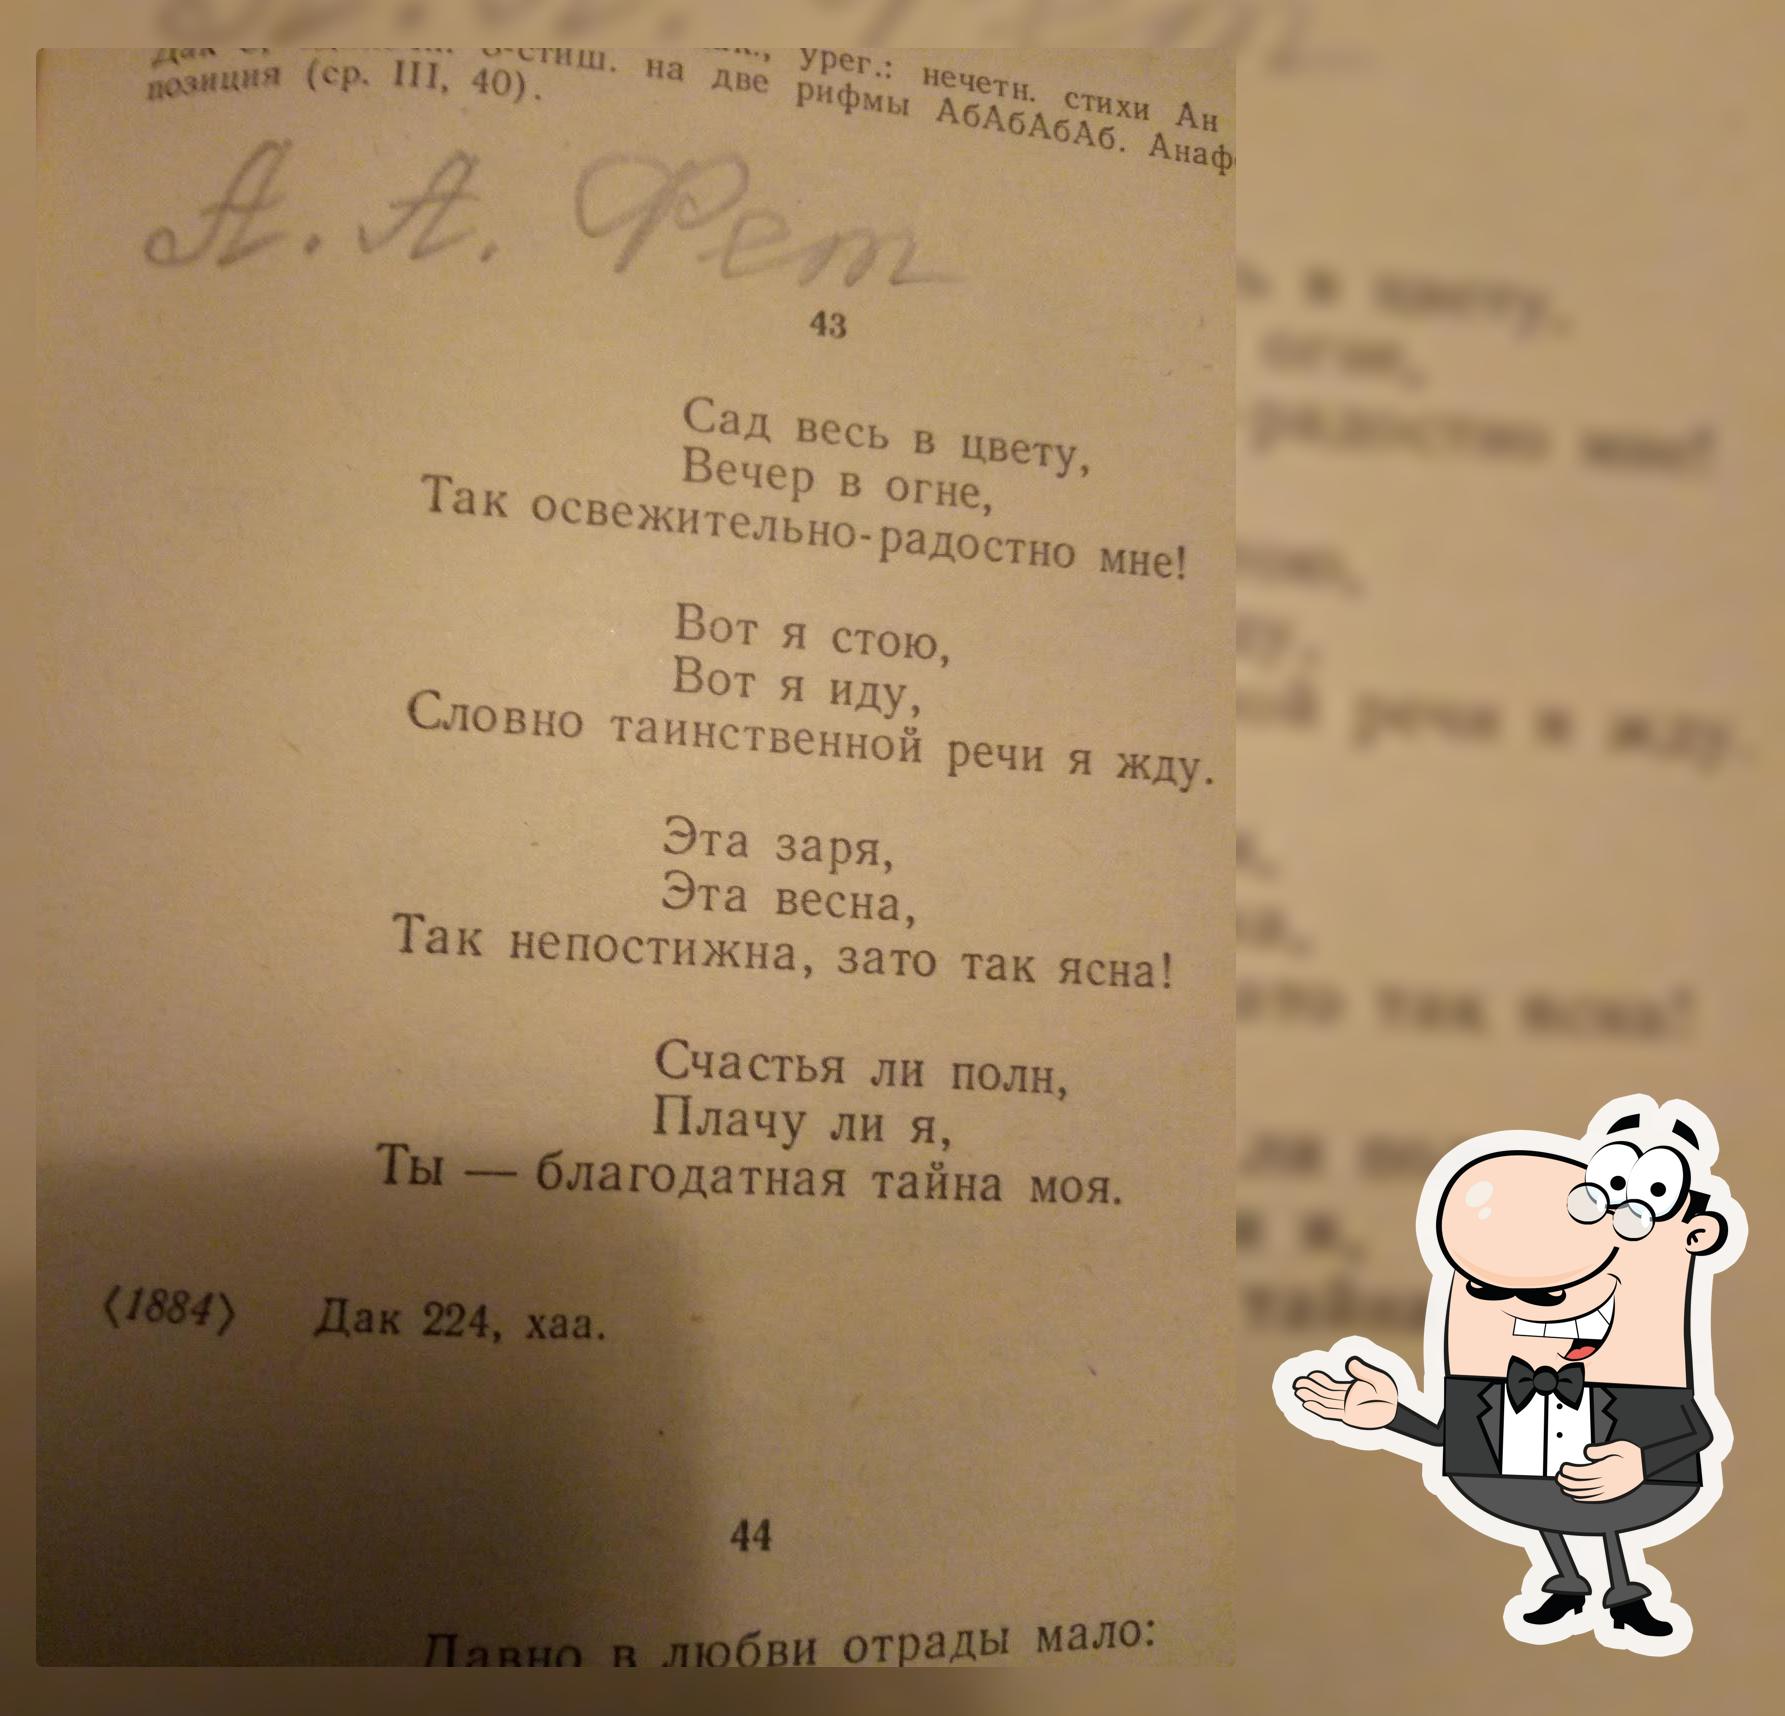 Дак 3, стиш. на две рифмы АбАбАбАб. Анаф
урег.: нечетн. стихи Ан
позиция (ср. III, 40).
А. А. Фет
43
Сад весь в цвету,
Вечер в огне,
Так освежительно-радостно мне!
Вот я стою,
Вот я иду,
Словно таинственной речи я жду.
Эта заря,
Эта весна,
Так непостижна, зато так ясна!
Счастья ли полн,
Плачу ли я,
Ты — благодатная тайна моя.
⟨1884⟩ Дак 224, хаа.
44
Давно в любви отрады мало: